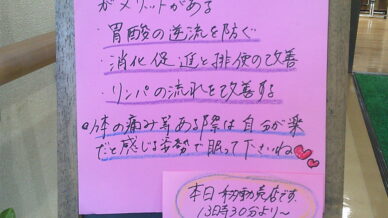 がメリットがある
・胃酸の逆流を防ぐ
・消化促進と排便の改善
・リンパの流れを改善する
体の痛み等ある際は自分が楽
だと感じる姿勢で眠って下さいね
本日移動売店です。
13時30分より〜